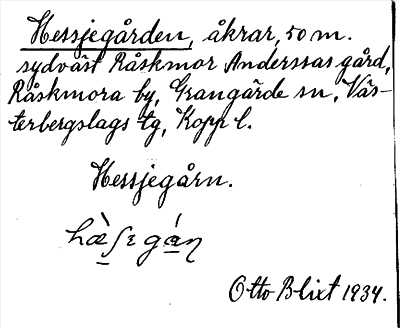 Hessjegården, åkrar, 50 m.
sydväst Råskmor Anderssas gård,
Råskmora by, Grangärde sn, Väs-
terbergslags tg, Kopp l.
Hessjegårn.
Otto Blixt 1934.